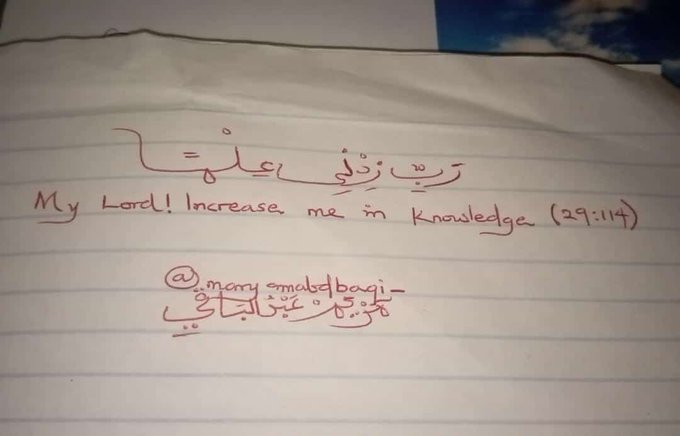 رَبِّ زِدْنِي عِلْمًا
My Lord! Increase me in Knowledge (29:114)
@maryamabdbaqi_
مَرْيَمْ عَبْدُالبَاقِي